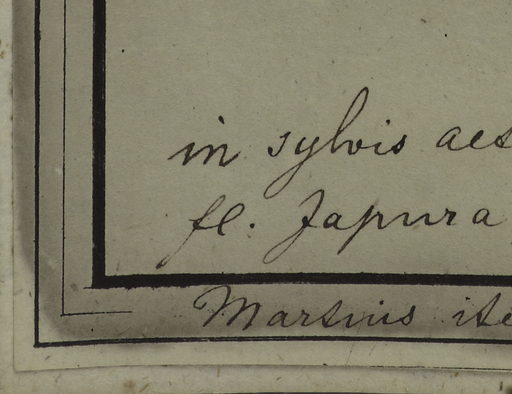 in sylvis aes
fl. Japura
Martius ite